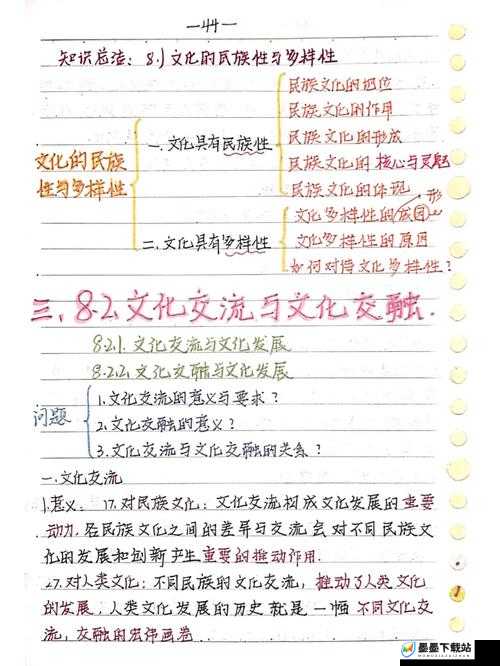 —44—
知识总法: 8.1文化的民族性与多样性
文化的民族
性与多样性
一.文化具有民族性
民族文化的地位
民族文化的作用
民族文化的形成
民族文化的核心与灵魂
民族文化的体现
二.文化具有多样性
文化多样性的成因
形
文化多样性的原因
如何对待文化多样性?
三. 8.2文化交流与文化交融.
8.2.1. 文化交流与文化发展
8.2.2. 文化交融与文化发展
问题
1.文化交流的意义与要求?
2.文化交融的意义?
3.文化交流与文化交融的关系?
一.文化交流
1.意义. 17.对民族文化: 文化交流构成文化发展的重要
动力. 各民族文化之间的差异与交流会对不同民族文
化的发展和创新产生重要的推动作用.
27.对人类文化: 不同民族的文化交流, 推动了人类文化
的发展; 人类文化发展的历史就是一幅不同文化交
流, 交融的宏伟画卷
墨墨下载站